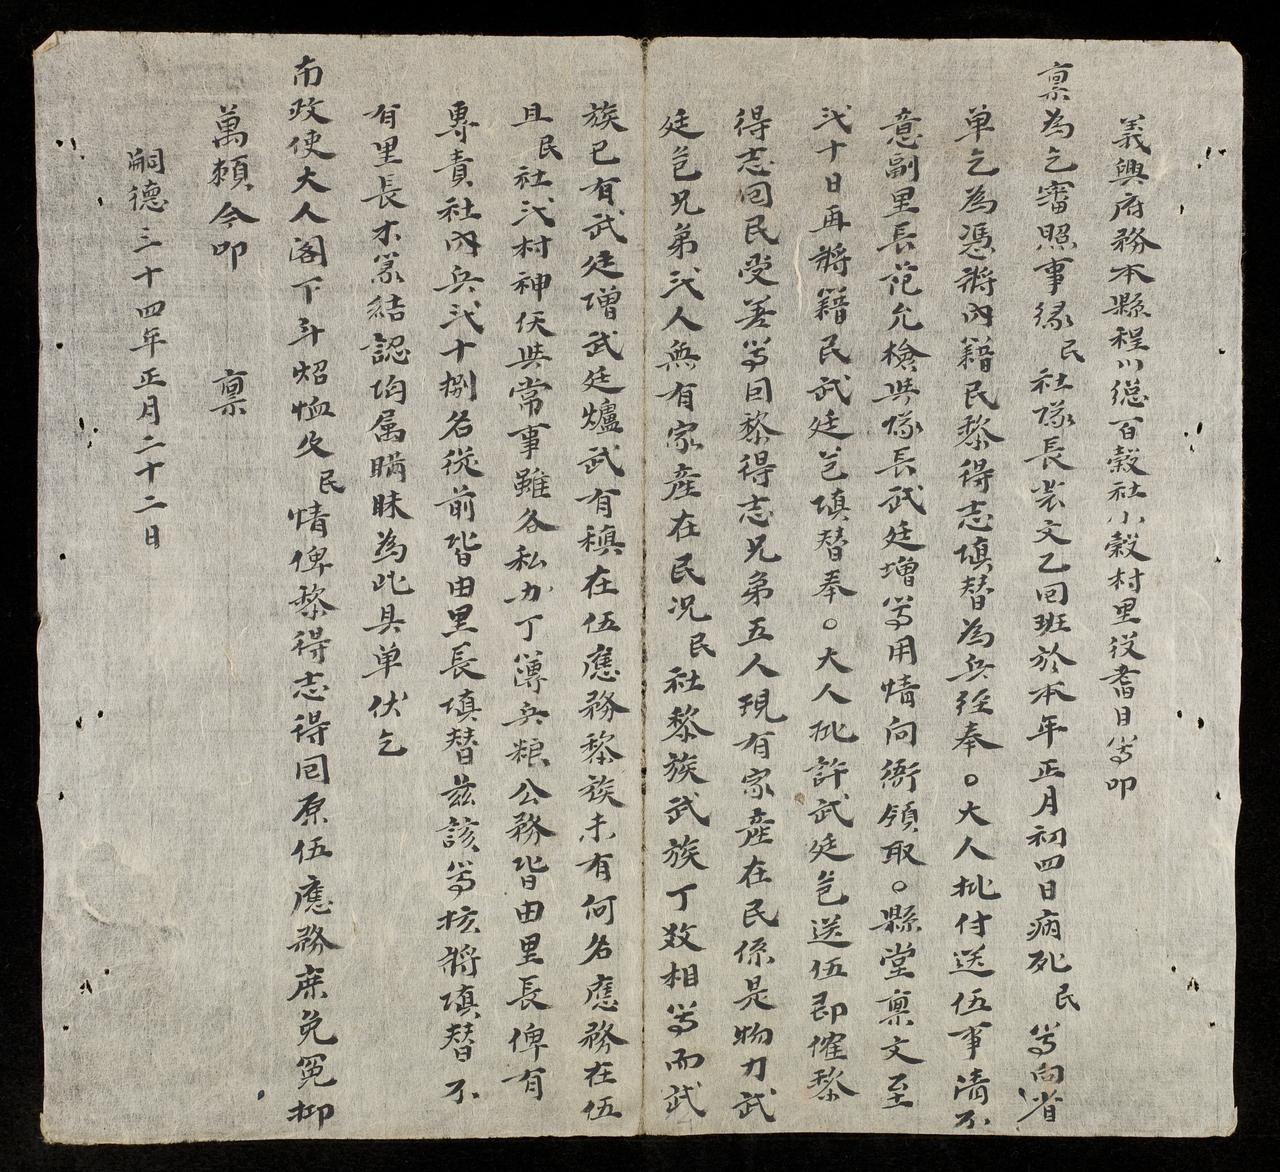 義興府務本縣程川總百穀社小穀村里役耆目等叩
稟為乞審照事緣民社隊長裴文乙回班於本年正月初四日病死民等向省
单乞為憑將內籍民黎得志填替為兵經奉。大人批付送伍事清不
意副里長范允檢與隊長武廷增等用情向衙領取。縣堂稟文至
弍十日再將籍民武廷芑填替奉。大人批許武廷芑送伍即催黎
得志回民受差等因黎得志兄弟五人現有家產在民係是物力武
廷芑兄弟弍人無有家產在民况民社黎族武族丁数相等而武
族已有武廷增武廷爐武有稹在伍應務黎族未有何名應務在伍
且民社弍村神伕與常事雖各私办丁簿兵粮公務皆由里長俾有
專責社內兵弍十捌名從前皆由里長填替兹該等核將填替不
有里長木篆結認均属瞞昧為此具单伏乞
南政使大人阁下斗炤恤及民情俾黎得志得回原伍應務庶免冤抑
萬頼今叩 稟
嗣德三十四年正月二十二日